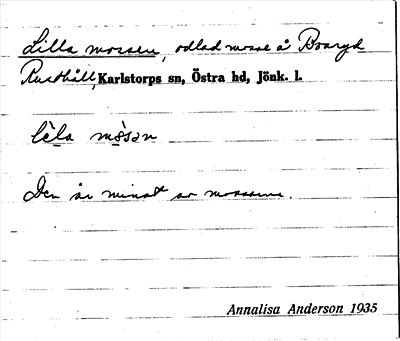 Lilla mossen, odlad mosse å Boaryd
Karlstorps sn, Östra hd, Jönk. l.
Den är minst av mossarna.
Annalisa Anderson 1935